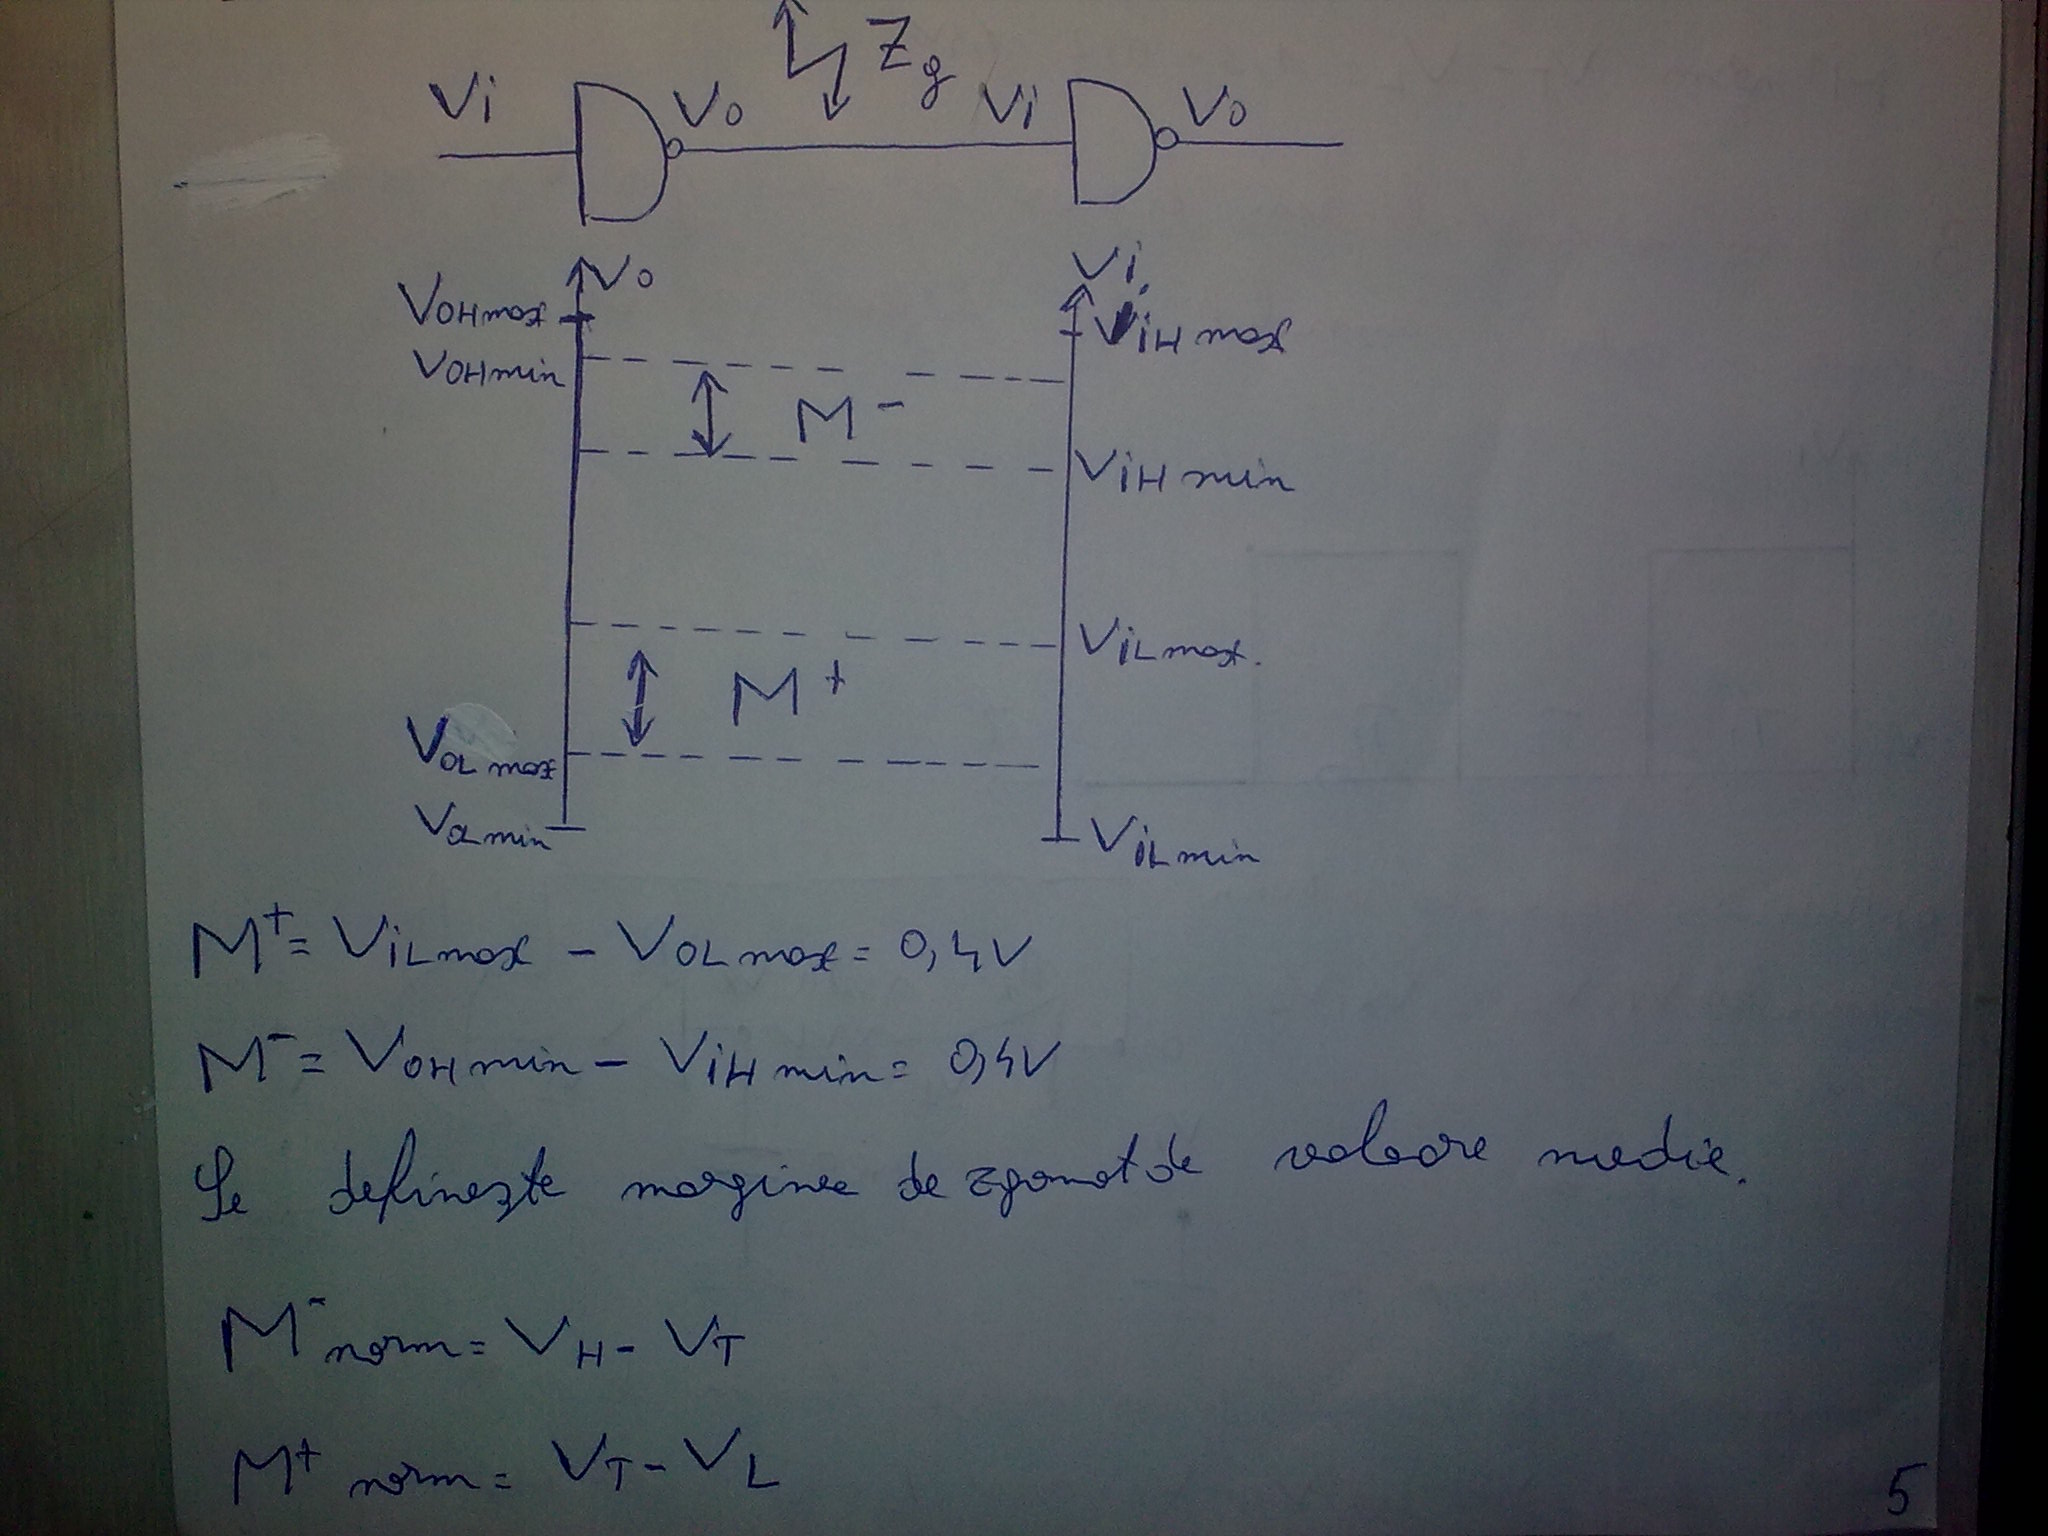 Zg
Vi Vo Vi Vo
Vo Vi
VOHmax ViHmax
VOHmin
M-
ViHmin
ViLmax.
M+
VOLmax
VOLmin ViLmin
M+ = ViLmax - VOLmax = 0,4V
M- = VOHmin - ViHmin = 0,4V
Se definește marginea de zgomot de valoare medie.
M- norm = VH - VT
M+ norm = VT - VL
5